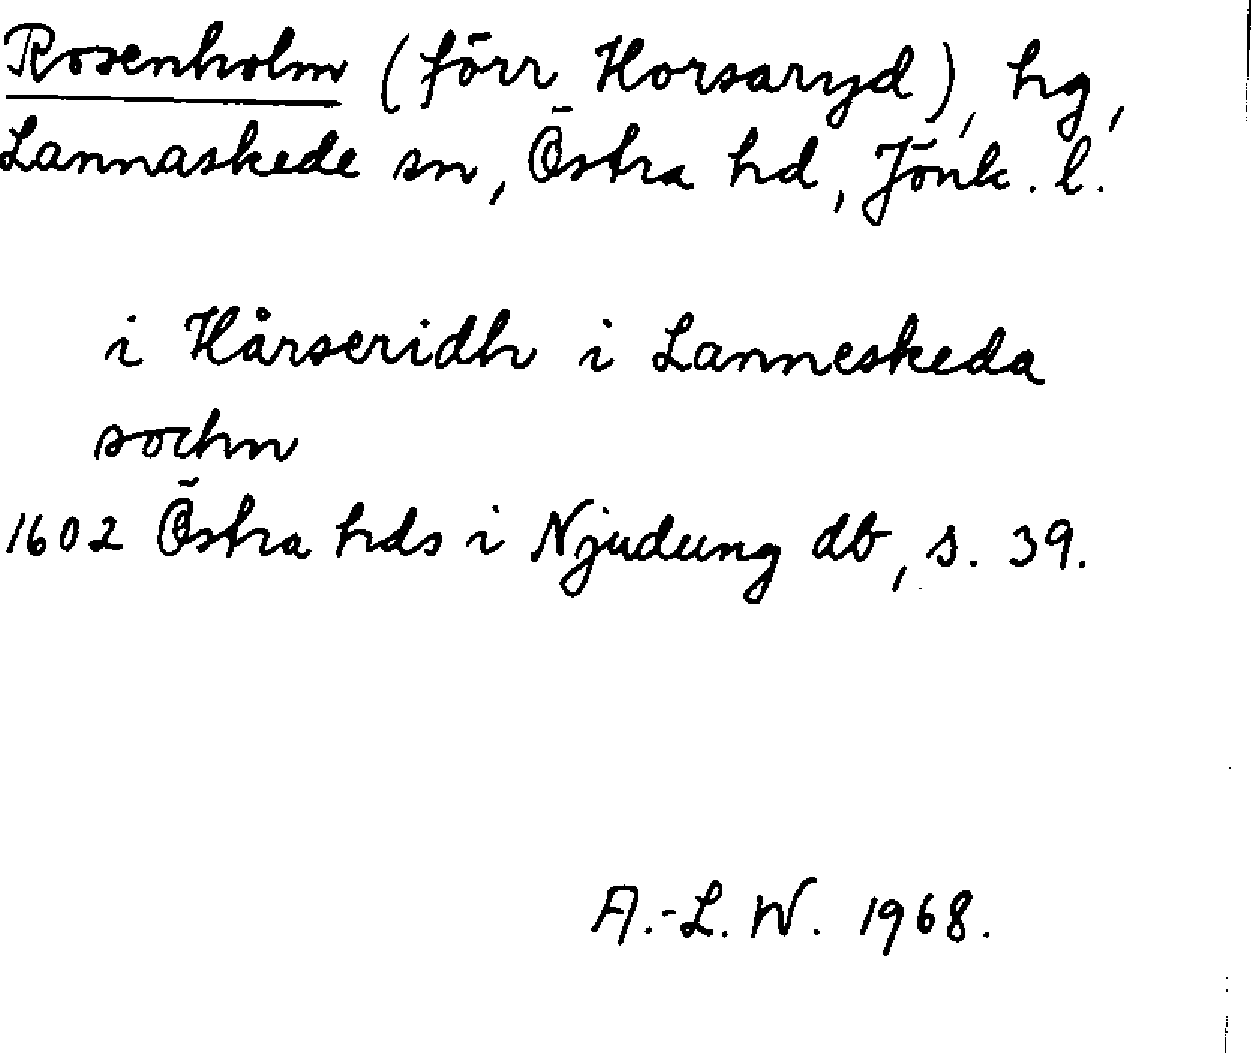 Rosenholm (förr Horsaryd), hg,
Lannaskede sn, Östra hd, Jönk. l.
i Hårseridh i Lanneskeda
sochn
1602 Östra hds i Njudung db, s. 39.
A.-L. W. 1968.